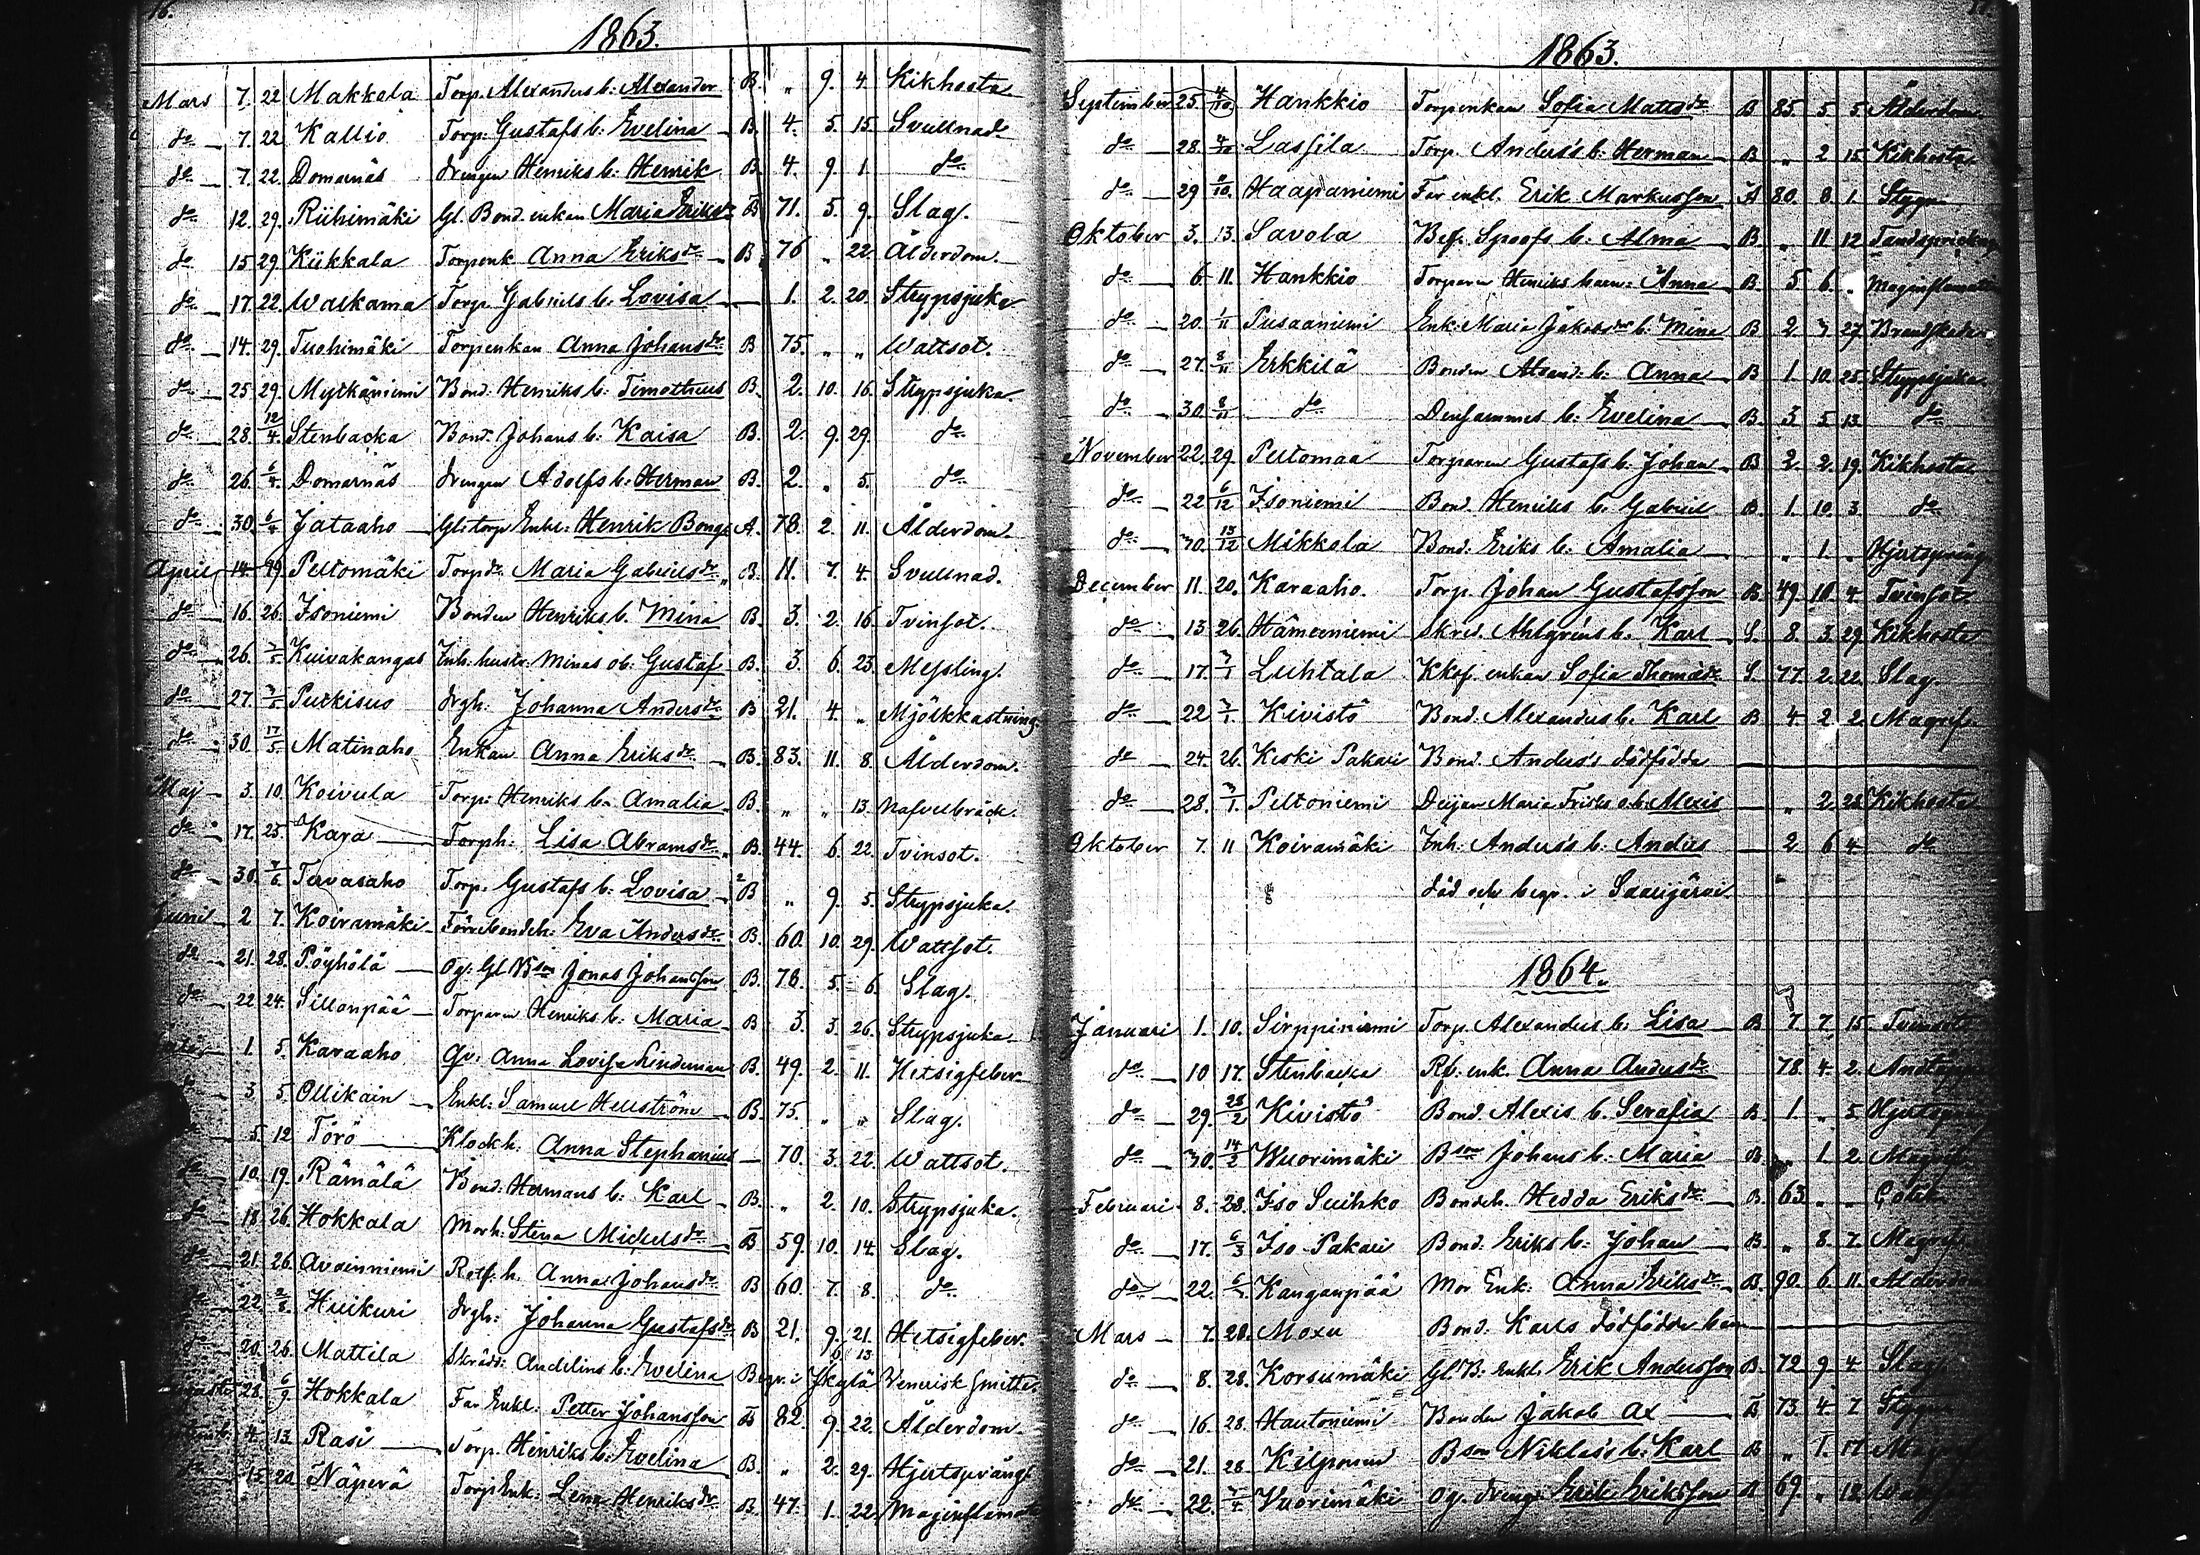 16.
1863.
Mars 7. 22 Makkola Torp. Alexanders b. Alexander B. " 9. 4. Kikhosta
do 7. 22 Kallio Torp. Gustafs b. Evelina B. 4. 5. 15. Svullnad
do 7. 22. Domarnäs drengen Henriks b. Henrik B. 4. 9. 1. do
do 12. 29. Riihimäki Gl. Bond. enkan Maria Eriksdr B 71. 5. 9. Slag.
do 15 29. Kiikkala Torpenk Anna Eriksdr B 76 " 22. Ålderdom.
do 17. 22. Walkama Torp. Gabriels b. Lovisa 1. 2. 20. Strypsjuka
do 14. 29. Tuohimäki Torpenkan Anna Johansdr B 75. " " Wattsot.
do 25 29. Mytkäniemi Bond. Henriks b. Timotheus B. 2. 10. 16. Strypsjuka.
do 28. 12/4. Stenbacka Bond. Johans b. Kaisa B. 2. 9. 29. do
do 26. 6/4. Domarnäs drengen Adolfs b. Herman B. 2. " 5. do
do 30. 6/4 Jataaho Gl. torp Enkl. Henrik Bonge A. 78. 2. 11. Ålderdom
April 14. 19. Peltomäki Torpdr Maria Gabrielsdr B. 11. 7. 4. Svullnad.
do 16. 26. Isoniemi Bonden Henriks b. Mina B. 3. 2. 16. Tvinsot.
do 26. 7/5 Kuivakangas Inh. hustr. Minas ob. Gustaf B. 3. 6. 23. Messling.
do 27. 3/5. Purkisuo drgh. Johanna Andersdr B 21. 4. " Mjölkkastning
do 30. 17/5. Matinaho Enkan Anna Eriksdr B. 83. 11. 8. Ålderdom.
Maj 3. 10. Koivula Torp. Henriks b. Amalia B. " " 13. Nafvelbråck.
do 17. 25. Kara Torph. Lisa Abramsdr B. 44. 6. 22. Tvinsot.
do 30. 7/6 Tervasaho Torp. Gustafs b. Lovisa B " 9. 5. Strypsjuka.
Juni 2 7. Koiramäki Förrebondeh. Eva Andersdr B. 60. 10. 29. Wattsot.
do 21. 28. Pöyhölä Og. Gl. Bson Jonas Johansson B. 76. 5. 6. Slag.
do 22 24. Sillonpää Torparen Henriks b. Maria B 3. 3. 26. Strypsjuka
1. 5. Karaaho Qv. Anna Lovisa Lindeman B. 49. 2. 11. Hetsigfeber
3. 5. Ollikain Enkl. Samuel Hellström B. 75. " " Slag.
5. 12 Törö Klockh. Anna Stephanius 70. 3. 22. Wattsot
do 10. 19. Rämälä Bond. Hermans b. Karl B. " 2. 10. Strypsjuka.
do 18. 26. Hokkala Morh. Stena Michelsdr B 59. 10. 14. Slag.
do 21. 26. Avainniemi Rotf. h. Anna Johansdr B 60. 7. 8. do
do 22. 2/8 Huikuri drgh. Johanna Gustafsdr B 21. 9. 21. Hetsigfeber.
do 20. 26. Mattila Skrädd. Andelins b. Evelina Begr. i Jkylä 6 13 Venerisk smitta.
28. 6/9 Hokkala Far Enkl. Petter Johansson B 82. 9. 22. Ålderdom.
4. 13. Rasi Torp. Henriks b. Evelina B. " 2. 29. Hjertsprång
do 15. 20. Näperä Torp Enk. Lena Henriksdr B. 47. 1. 22. Maginflama
1863.
September 25. 4/10 Hankkio Torpenkan Sofia Mattsdr B 85. 5 5. Ålderdom
do 28. 4/10 Lassila Torp. Anders's b. Herman B " 2 15 Kikhosta
do 29 /10. Haapaniemi Far enkl. Erik Markusson A 80. 8. 1. Stygn
Oktober 3. 13. Savola Bef. Spoofs b. Alma B " 11 12 Tandsprickning
do 6. 11. Hankkio Torparen Henriks barn Anna B. 5 6. " Maginflamation
do 20. 1/11 Pusaaniemi Enk. Maria Jakobsdr b. Mina B 2 7 27. Brandskador
do 27. 8/11 Erkkilä Bonden Alexand. b. Anna B 1. 10. 25. Strypsjuka
do 30. 8/11 do Densammes b. Evelina B. 3 5 13. do
November 22. 29. Peltomaa Torparen Gustafs b. Johan B 2. 2. 19. Kikhosta
do 22 6/12 Isoniemi Bond. Henriks b. Gabriel B. 1. 10. 3. do
do 30. 13/12 Mikkola Bond. Eriks b. Amalia " 1. " Hjertsprång
December 11. 20. Karaaho. Torp. Johan Gustafsson B. 49. 10. 4. Tvinsot.
do 13. 26. Hämeeniemi Skred. Ahlgréns b. Karl S. 8. 3. 29. Kikhosta
do 17. 3/1 Luhtala Kkof. enkan Sofia Thomasdr S. 77. 2. 22. Slag.
do 22 3/1. Kivistö Bond. Alexanders b. Karl B 4 2 2. Maginf.
do 24. 26. Keski Pakari Bond. Anders's dödfödde
do 28. 3/1. Peltoniemi Deijan Maria Frisks o.b. Alexis " 2. 28. Kikhosta
Oktober 7. 11 Koiramäki Inh. Anders's b. Anders 2 6 4. do
död och begr. i Saarijärvi.
1864.
Januari 1. 10. Sirppiniemi Torp. Alexanders b. Lisa B 7 7. 15. Tvinsot
do 10 17. Stenbacka Rf. enk. Anna Andersdr 78. 4. 2. Andtäppa
do 29. 28/2 Kivistö Bond. Alexis b. Serafia B. 1. " 5. Hjertsprång
do 30. 14/2 Wuorimäki Bson Johans b. Maria B. " 1. 2. Maginfl.
Februari 8. 28. Iso Suihko Bondeh. Hedda Eriksdr B. 63. " "
do 17. 6/3 Iso-Pakari Bond. Eriks b. Johan B. " 8. 7. Maginf
do 22. 6/3 Kanganpää Mor Enk. Anna Eriksdr B. 90. 6. 11. Ålderdom
Mars 7. 28. Moxu Bond. Karls dödfödde barn
do 8. 28. Korsumäki Gl. B. enkl. Erik Andersson B. 72 9 4 Slag
do 16 28. Hautoniemi Bonden Jakob Ax B 73. 4. 7. Stygn
do 21. 28 Kilponen Bson Niklas's b. Karl B " 1. 17. Maginf
do 22. 3/4. Vuorimäki Og. dreng. Erik Eriksson B 69. " 12.